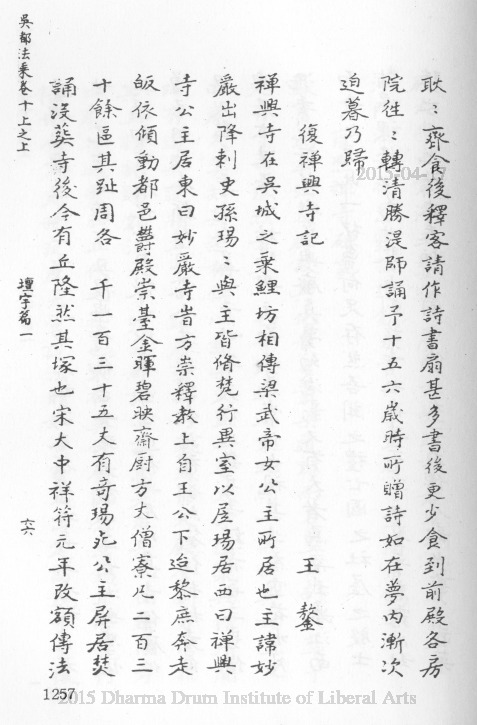 耿〻齊食後釋客請作詩書扇甚多書後更少食到前殿各房
院徃〻轉清勝湜師誦予十五六歲時所贈詩如在夢內漸次
迫暮乃歸
復禪興寺記　王鏊
禪興寺在吳城之乘鯉坊相傳梁武帝女公主所居也主諱妙
嚴出降刺史孫瑒〻與主皆脩梵行異室以居瑒居西曰禪興
寺公主居東曰妙嚴寺昔方崇釋教上自王公下迨黎庶奔走
皈依傾動都邑欝殿崇臺金暉碧映齋厨方丈僧寮凡二百三
十餘區其趾周各　千一百三十五丈有奇瑒死公主屏居焚
誦沒葬寺後今有丘隆然其塚也宋大中祥符元年改額傳法
吳都法乘卷十上之上
壇宇篇一
六六
1257
2015-04-
2015 Dharma Drum Institute of Liberal Arts